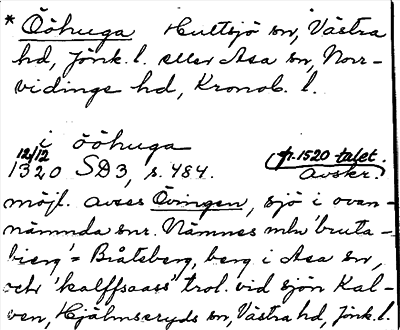 * Ööhuga Hultsjö sn, Västra
hd, Jönk. l. eller Asa sn, Norr-
vidinge hd, Kronob. l.
i ööhuga
12/12 1320 SD3, s. 484. (fr. 1520-talet. avskr.)
möjl. avses Övingen, sjö i ovan-
nämnda snr. Nämnes mhv 'bruta-
bierg' = Bråtsberg, berg i Asa sn,
och 'kalffsaass' trol. vid sjön Kal-
ven, Hjälmseryds sn, Västra hd, Jönk. l.